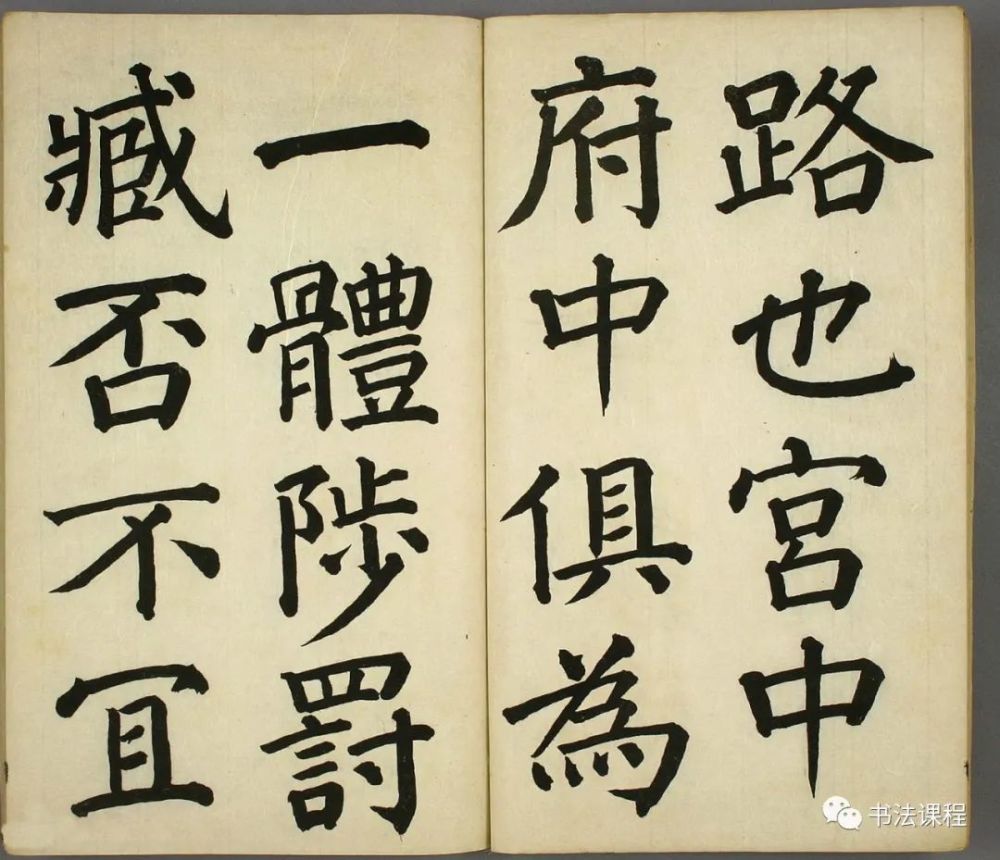 路也宮中
府中俱為
一體陟罰
臧否不冝
书法课程